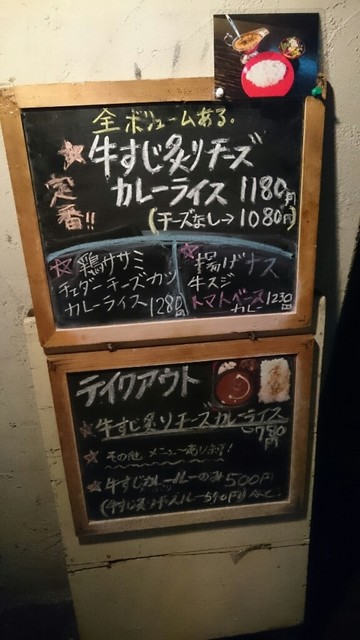 全ボリュームある。
★牛すじ炙りチーズ
定番!!
カレーライス 1180円
(チーズなし→1080円)
☆鶏ササミ
チェダーチーズカツ
カレーライス 1280円
★揚げナス
牛スジ
トマトベース
カレー 1230円
テイクアウト
★牛すじ炙りチーズカレーライス
780円
★その他メニューあります!
★牛すじカレールーのみ 500円